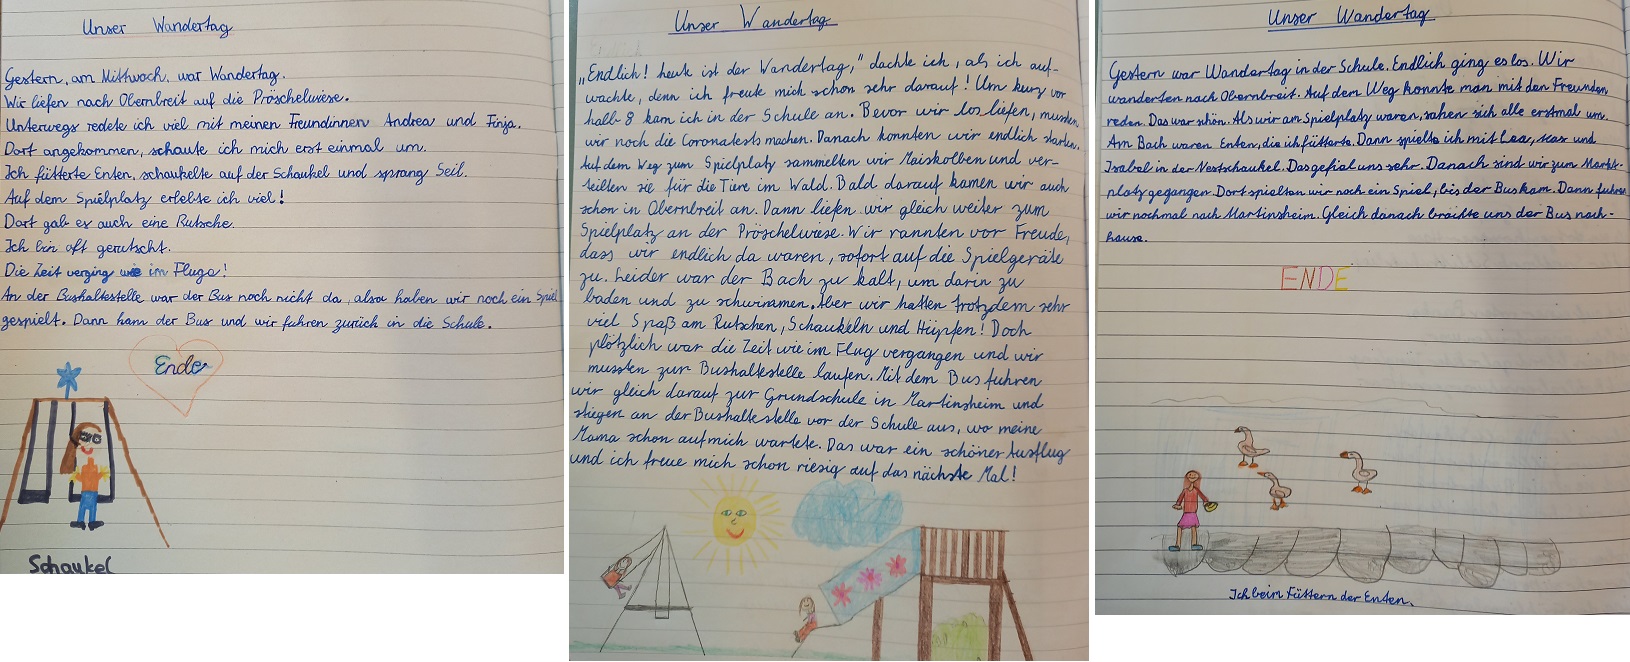 Unser Wandertag
Gestern, am Mittwoch, war Wandertag.
Wir liefen nach Obernbreit auf die Pröschelwiese.
Unterwegs redete ich viel mit meinen Freundinnen Andrea und Finja.
Dort angekommen, schaute ich mich erst einmal um.
Ich fütterte Enten, schaukelte auf der Schaukel und sprang Seil.
Auf dem Spielplatz erlebte ich viel!
Dort gab es auch eine Rutsche.
Ich bin oft gerutscht.
Die Zeit verging wie im Fluge!
An der Bushaltestelle war der Bus noch nicht da, also haben wir noch ein Spiel
gespielt. Dann kam der Bus und wir fuhren zurück in die Schule.
Ende
Schaukel
Unser Wandertag
„Endlich! heute ist der Wandertag," dachte ich, als ich auf-
wachte, denn ich freute mich schon sehr darauf! Um kurz vor
halb 8 kam ich in der Schule an. Bevor wir los liefen, mussten
wir noch die Coronatests machen. Danach konnten wir endlich starten.
Auf dem Weg zum Spielplatz sammelten wir Maiskolben und ver-
teilten sie für die Tiere im Wald. Bald darauf kamen wir auch
schon in Obernbreit an. Dann liefen wir gleich weiter zum
Spielplatz an der Pröschelwiese. Wir rannten vor Freude,
dass wir endlich da waren, sofort auf die Spielgeräte
zu. Leider war der Bach zu kalt, um darin zu
baden und zu schwimmen. Aber wir hatten trotzdem sehr
viel Spaß am Rutschen, Schaukeln und Hüpfen! Doch
plötzlich war die Zeit wie im Flug vergangen und wir
mussten zur Bushaltestelle laufen. Mit dem Bus fuhren
wir gleich darauf zur Grundschule in Martinsheim und
stiegen an der Bushaltestelle vor der Schule aus, wo meine
Mama schon auf mich wartete. Das war ein schöner Ausflug
und ich freue mich schon riesig auf das nächste Mal!
Unser Wandertag
Gestern war Wandertag in der Schule. Endlich ging es los. Wir
wanderten nach Obernbreit. Auf dem Weg konnte man mit den Freunden
reden. Das war schön. Als wir am Spielplatz waren, sahen sich alle erstmal um.
Am Bach waren Enten, die ich fütterte. Dann spielte ich mit Lea, Max und
Isabel in der Nestschaukel. Das gefiel uns sehr. Danach sind wir zum Markt-
platz gegangen. Dort spielten wir noch ein Spiel, bis der Bus kam. Dann fuhren
wir nochmal nach Martinsheim. Gleich danach brachte uns der Bus nach-
hause.
ENDE
Ich beim Füttern der Enten.